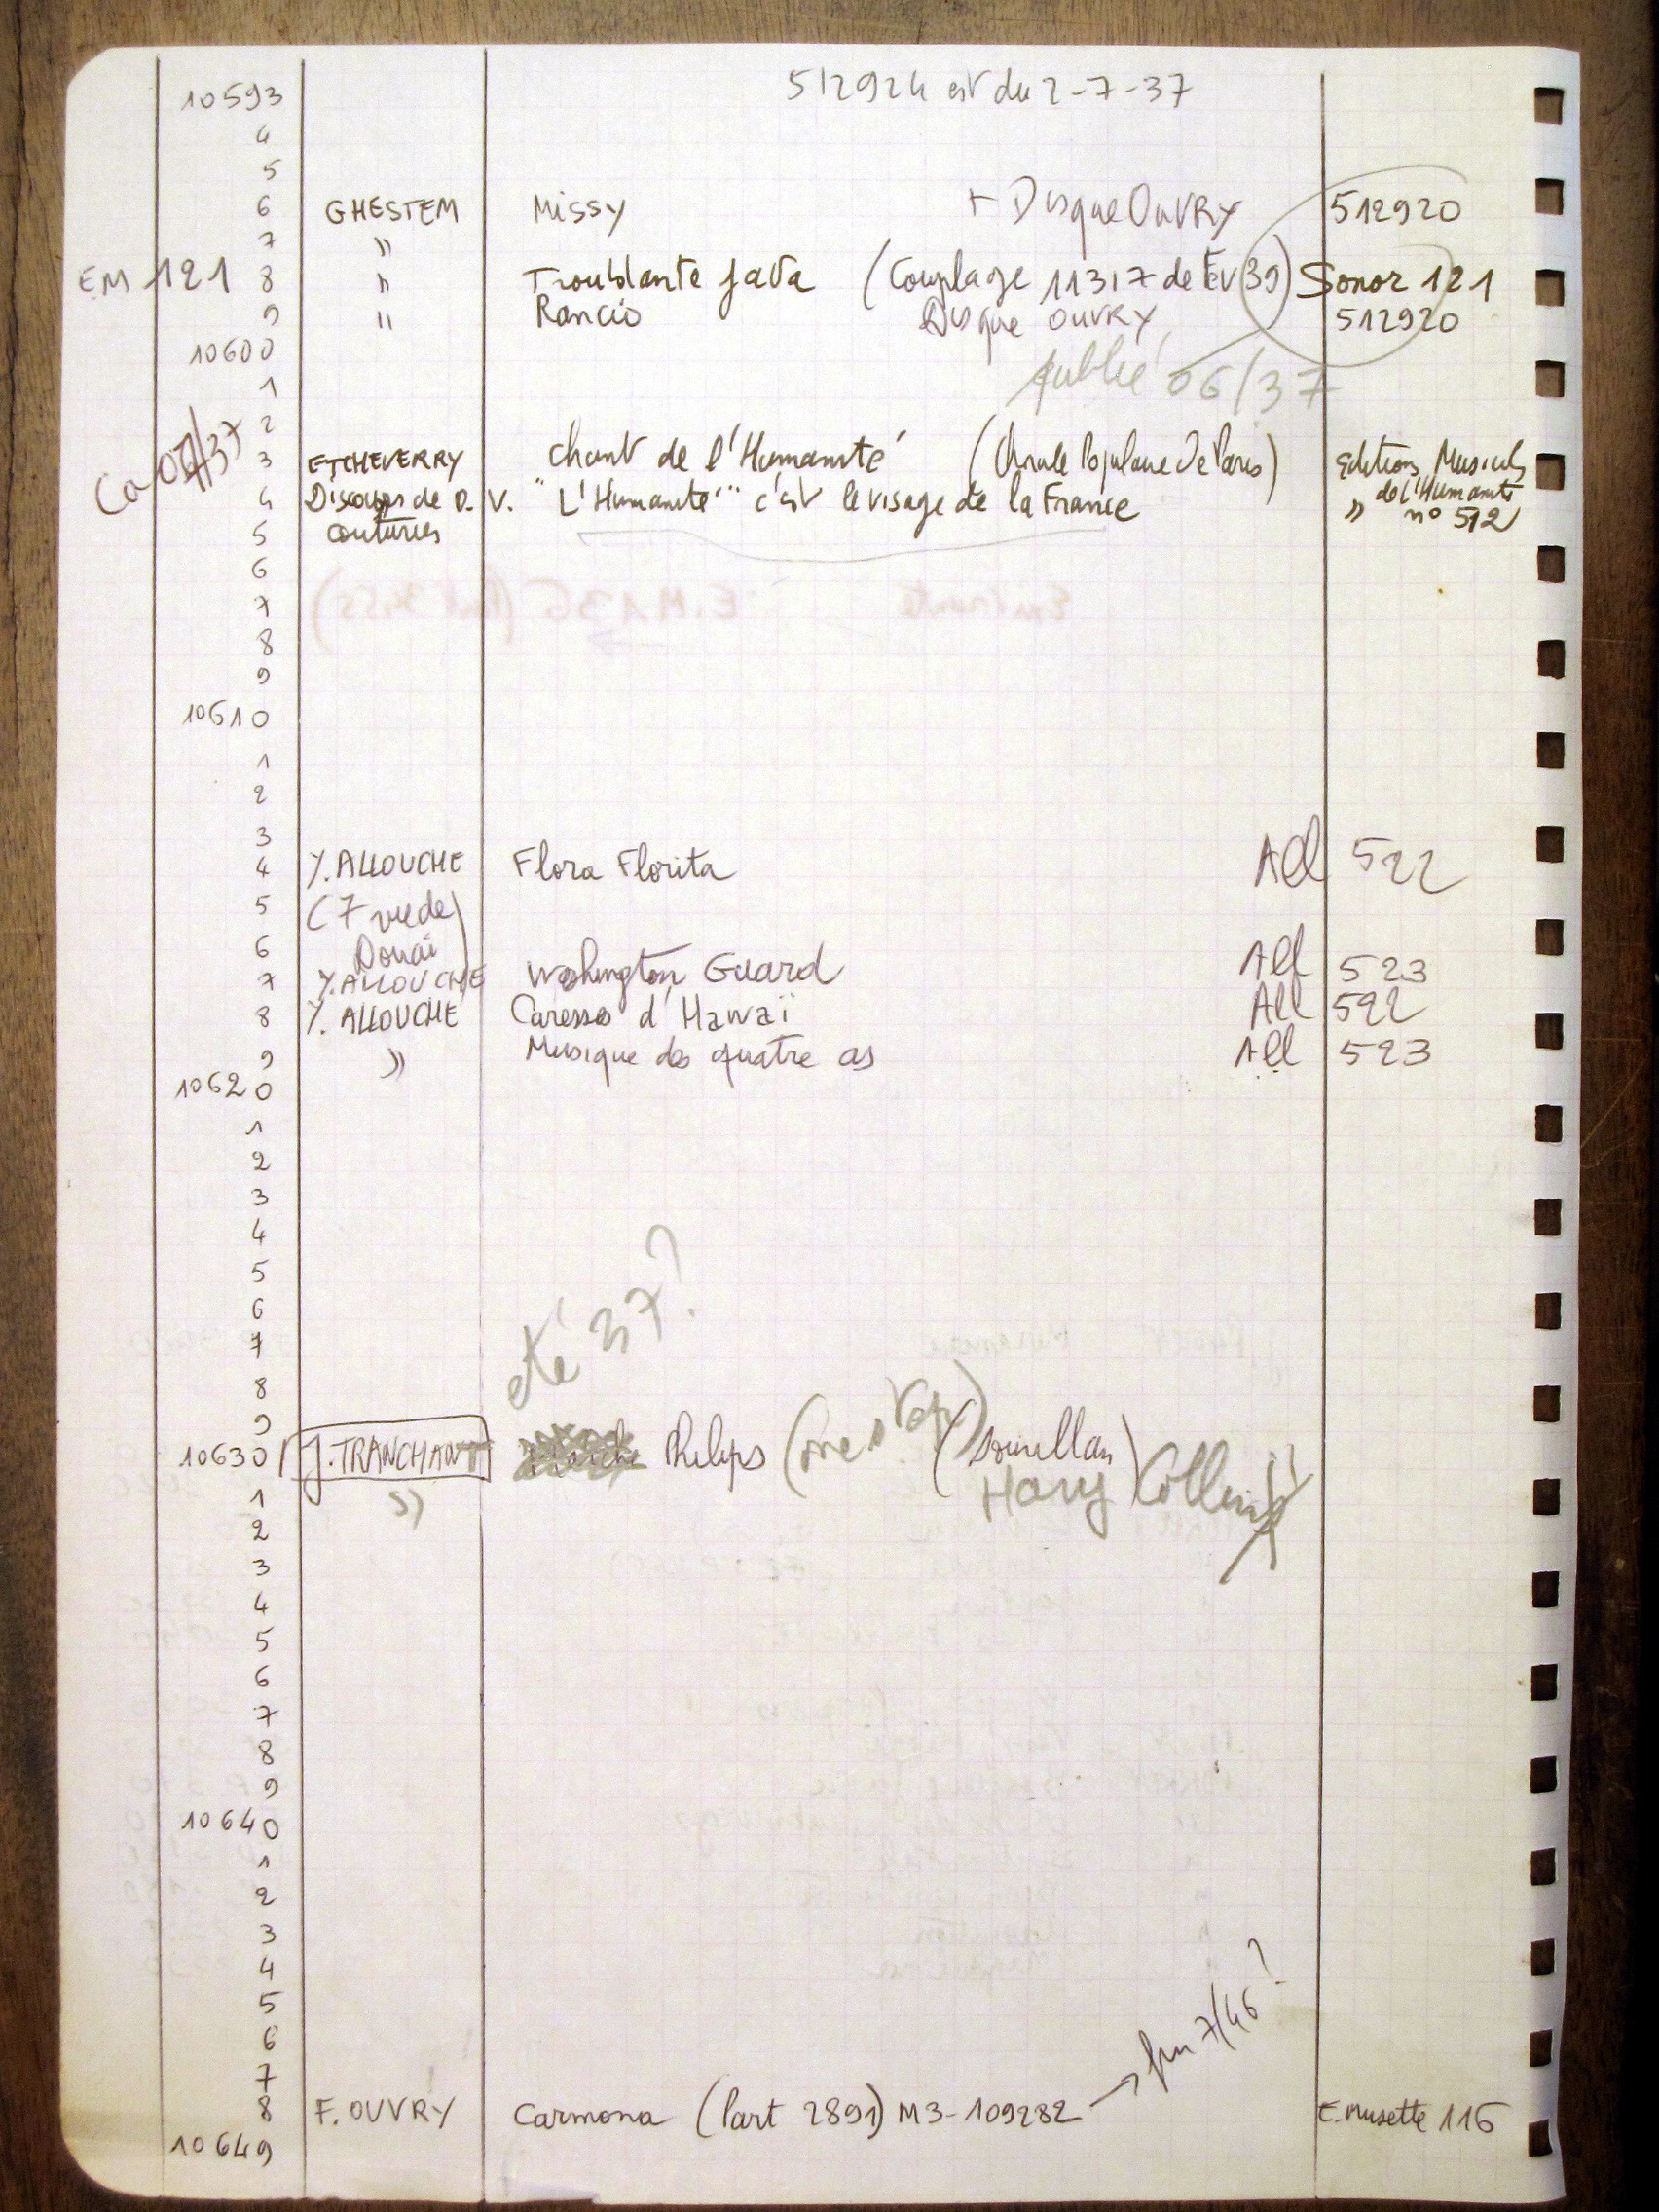 512924 est du 2-7-37
10593
4
5
6 GHESTEM Missy + Disque OUVRY 512920
7 "
EM 121 8 " Troublante Java (Couplage 11317 de Fév 39) Sonor 121
9 " Rancio Disque OUVRY 512920
10600 publié 06/37
1
2
Ca 07/37
3 ETCHEVERRY Chant de l'Humanité (Chorale Populaire De Paris) Editions Musicales
4 Discours de P. V. "L'Humanité" c'est le visage de la France " de l'Humanité
5 Couturies n° 512
6
7
8
9
10610
1
2
3
4 Y. ALLOUCHE Flora Florita All 522
5 (7 rue de
6 Douai)
7 Y. ALLOUCHE Washington Guard All 523
8 Y. ALLOUCHE Caresses d'Hawaï All 522
9 " Musique des quatre as All 523
10620
1
2
3
4
5
6
7
8
été 37?
9
10630 J. TRANCHANT Philips
1 " Harry
2
3
4
5
6
7
8
9
10640
1
2
3
4
5
6
7
→ fin 7/46?
8 F. OUVRY Carmona (Part 2891) M3-109282 E. Musette 116
10649